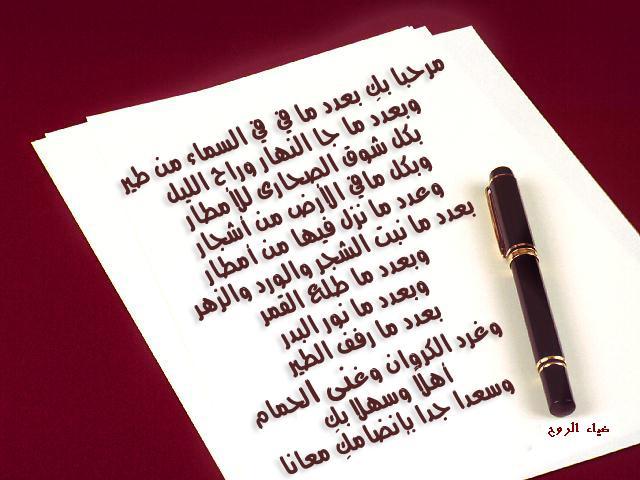 مرحبا بكِ بعدد ما في في السماء من طير
وبعدد ما جا النهار وراح الليل
بكل شوق الصحارى للأمطار
وبكل مافي الأرض من أشجار
وعدد ما نزل فيها من أمطار
بعدد ما نبت الشجر والورد والزهر
وبعدد ما طلع القمر
وبعدد ما نور البدر
بعدد ما رفف الطير
وغرد الكروان وغنى الحمام
أهلًا وسهلا بكِ
وسعدا جدا بإنضامكِ معانا
ضياء الروح